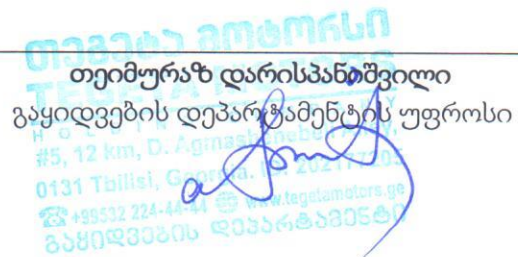 თეგეტა მოტორსი
TEGETA MOTORS
თეიმურაზ დარისპანაშვილი
გაყიდვების დეპარტამენტის უფროსი
#5, 12 km, D. Agmashenebeli
0131 Tbilisi, Georgia,
+99532 224-44-44 www.tegetamotors.ge
გაყიდვების დეპარტამენტი